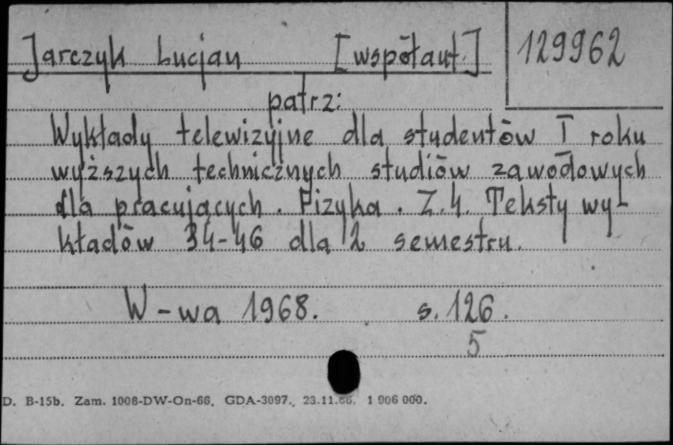 Jarczyk Lucjan [współaut.] 129962
patrz:
Wykłady telewizyjne dla studentów I roku
wyższych technicznych studiów zawodowych
dla pracujących. Fizyka. Z.4. Teksty wy-
kładów 34-46 dla 2 semestru.
W-wa 1968. s. 126.
5
D. B-15b. Zam. 1008-DW-On-66. GDA-3097. 23.11.66. 1 906 000.